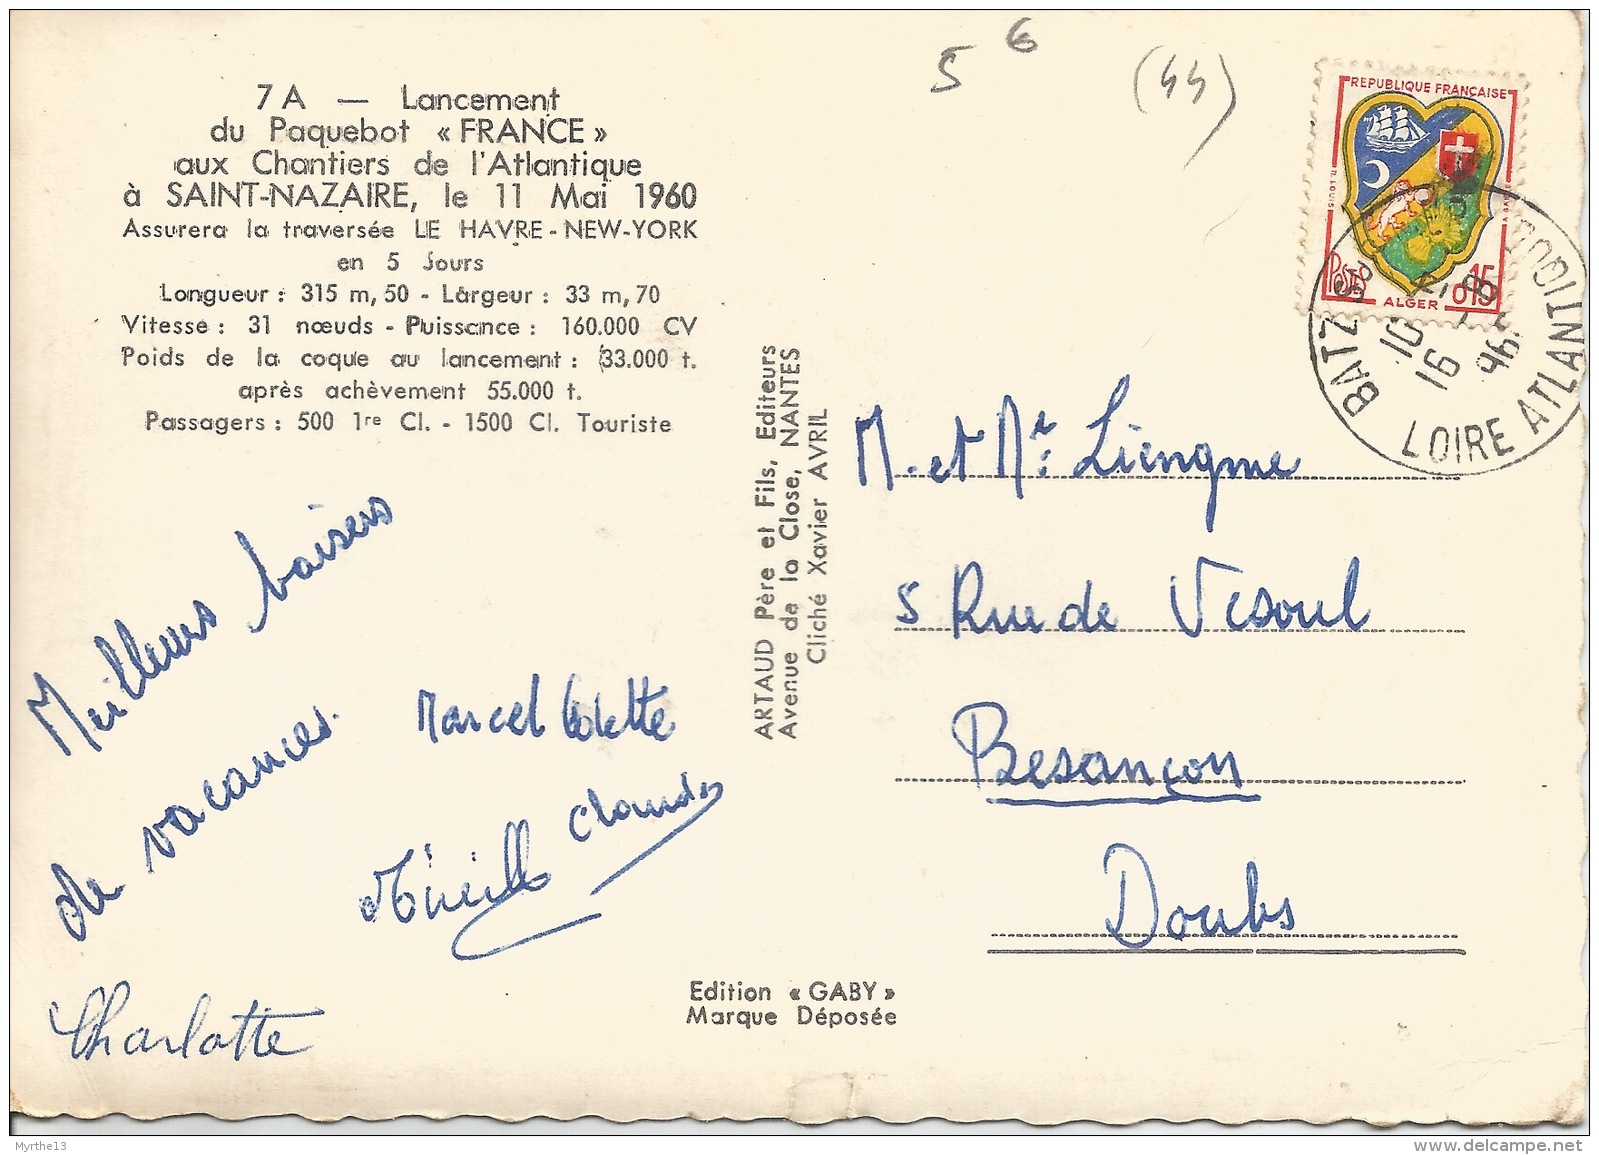 7 A — Lancement
du Paquebot « FRANCE »
aux Chantiers de l'Atlantique
à SAINT-NAZAIRE, le 11 Mai 1960
Assurera la traversée LE HAVRE - NEW-YORK
en 5 Jours
Longueur : 315 m, 50 - Largeur : 33 m, 70
Vitesse : 31 nœuds - Puissance : 160.000 CV
Poids de la coque au lancement : 33.000 t.
après achèvement 55.000 t.
Passagers : 500 1re Cl. - 1500 Cl. Touriste
Meilleurs baisers
de vacances.
Marcel Colette
Claudes
Mireille
Charlotte
ARTAUD Père et Fils, Editeurs
Avenue de la Close, NANTES
Cliché Xavier AVRIL
Edition « GABY »
Marque Déposée
5 6
(44)
REPUBLIQUE FRANÇAISE
POSTES
0.15
ALGER
BATZ
LOIRE ATLANTIQUE
16
M. et Mr. Liengme
5 Rue de Vesoul
Besançon
Doubs
Myrthe13
www.delcampe.net